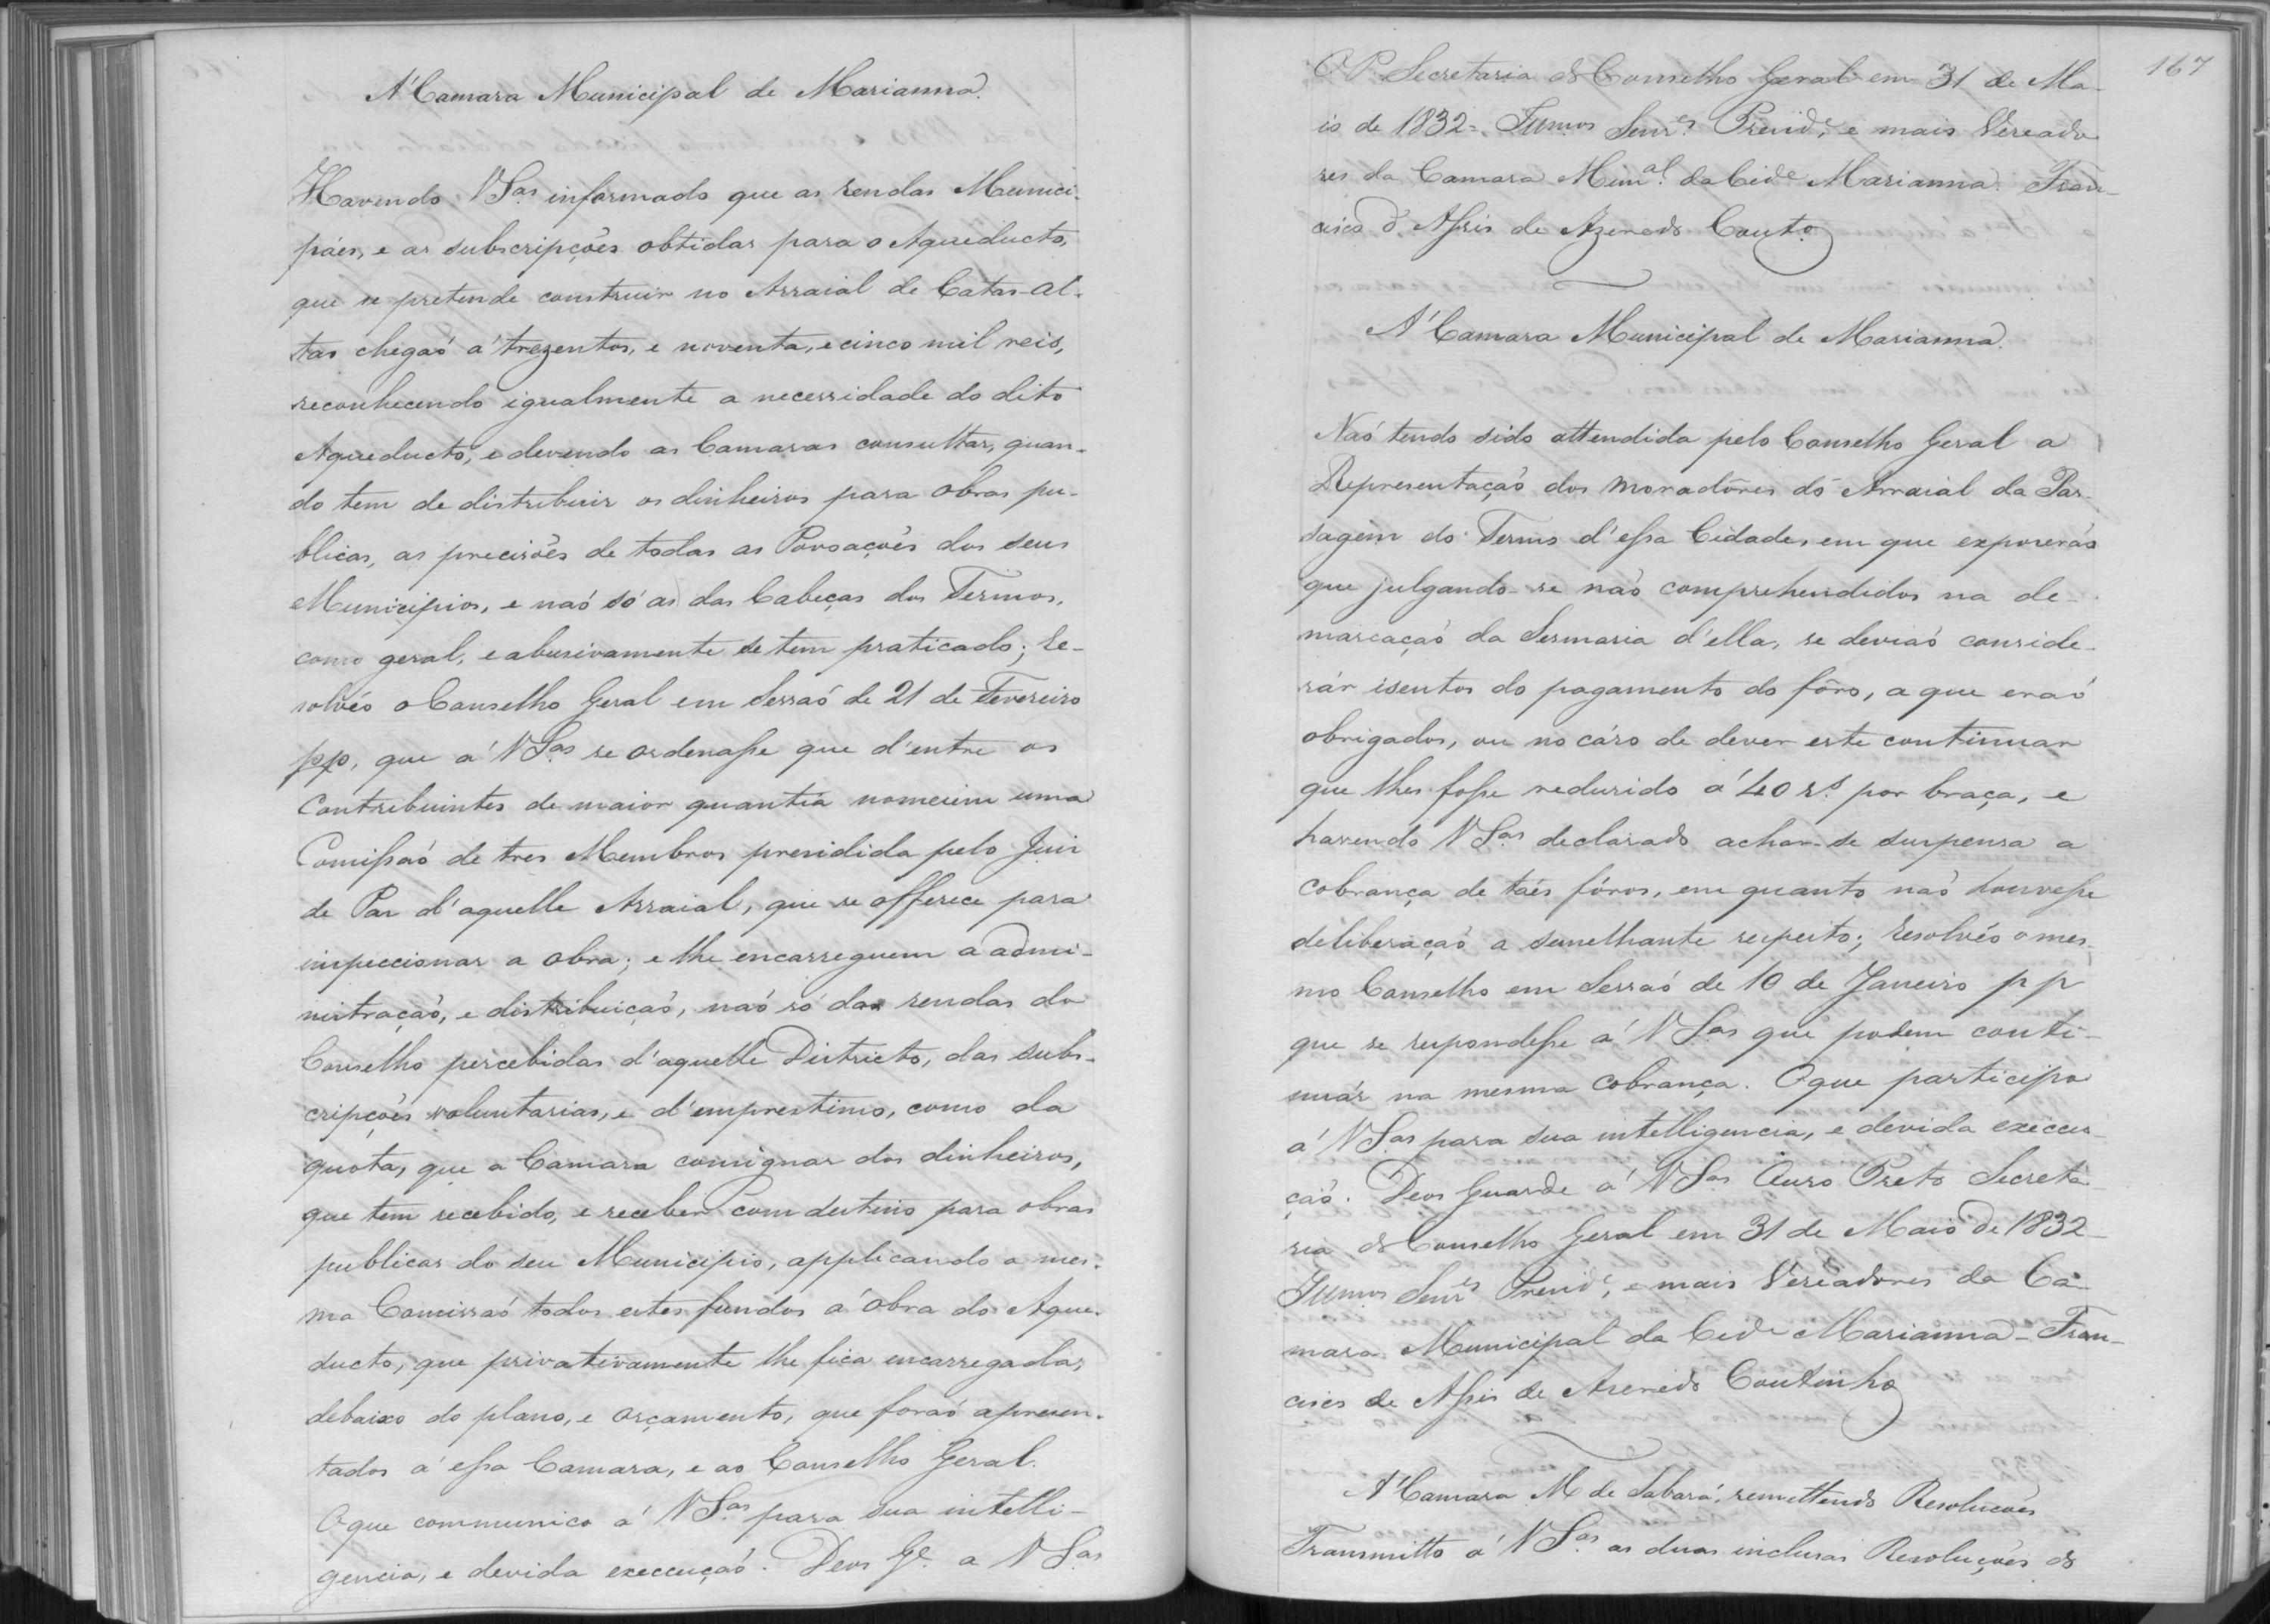 A' Camara Municipal de Marianna.
Havendo VSas informado que as rendas Munici-
páes, e as subscripções obtidas para o Aqueducto,
que se pretende construir no Arraial de Catas-al-
tas chegaõ á trezentos, e noventa, e cinco mil reis,
reconhecendo igualmente a necessidade do dito
Aqueducto, e devendo as Camaras consultar, quan-
do tem de distribuir os dinheiros para obras pu-
blicas, as precisões de todas as Povoações dos seus
Municipios, e naõ só as das Cabeças dos Termos,
como geral, e abusivamente se tem praticado; Re-
solvêo o Conselho Geral em Sessaõ de 21 de Fevereiro
pp, que a' VSas se ordenasse que d'entre os
Contribuintes de maior quantia nomeiem uma
Comissaõ de tres Membros presidida pelo Juis
de Pas d'aquelle Arraial, que se offerece para
inspeccionar a obra; e lhe encarreguem a admi-
nistraçaõ, e distribuiçaõ, naõ só das rendas do
Conselho percebidas d'aquelle Districto, das subs-
cripções voluntarias, e d'emprestimo, como da
quota, que a Camara consignar dos dinheiros,
que tem recebido, e receber com destino para obras
publicas do seu Municipio, applicando a mes-
ma Comissaõ todos estes fundos á obra do Aque-
ducto, que privativamente lhe fica encarregada,
debaixo do plano, e orçamento, que foraõ apresen-
tados á essa Camara, e ao Conselho Geral.
O que communico á VSas para sua intelli-
gencia, e devida execuçaõ. Deos Ge. a VSas
167
O P. Secretaria do Conselho Geral em 31 de Ma-
io de 1832 = Illmos Senres Preside, e mais Vereado
res da Camara Munal da Cide Marianna. Fran-
cisco d'Assis de Azeredo Couto.
A' Camara Municipal de Marianna.
Naõ tendo sido attendida pelo Conselho Geral a
Representaçaõ dos moradôres do Arraial da Pas-
sagem do Termo d'essa Cidade, em que exposeraõ
que julgando-se naõ comprehendidos na de-
marcaçaõ da Sesmaria d'ella, se deviaõ conside-
rár isentos do pagamento do fôro, a que eraõ
obrigados, ou no cáso de dever este continuar
que lhes fosse redusido á 40 rs. por braça, e
havendo VSas declarado achar-se suspensa a
cobrança de táes fóros, em quanto naõ houvesse
deliberaçaõ a semelhante respeito; Resolvêo o mes-
mo Conselho em Sessaõ de 10 de Janeiro p p
que se respondesse á VSas que podem conti-
nuár na mesma cobrança. O que participo
á VSas para sua intelligencia, e devida execu-
çaõ. Deos Guarde á VSas Ouro Preto Secreta-
ria do Conselho Geral em 31 de Maio de 1832 -
Illmos Senres Preside, e mais Vereadores da Ca-
mara Municipal da Cide Marianna - Fran-
cisco de Assis de Azeredo Coutinho
A' Camara M de Sabará, remettendo Resoluções
Transmitto á VSas as duas inclusas Resoluções do